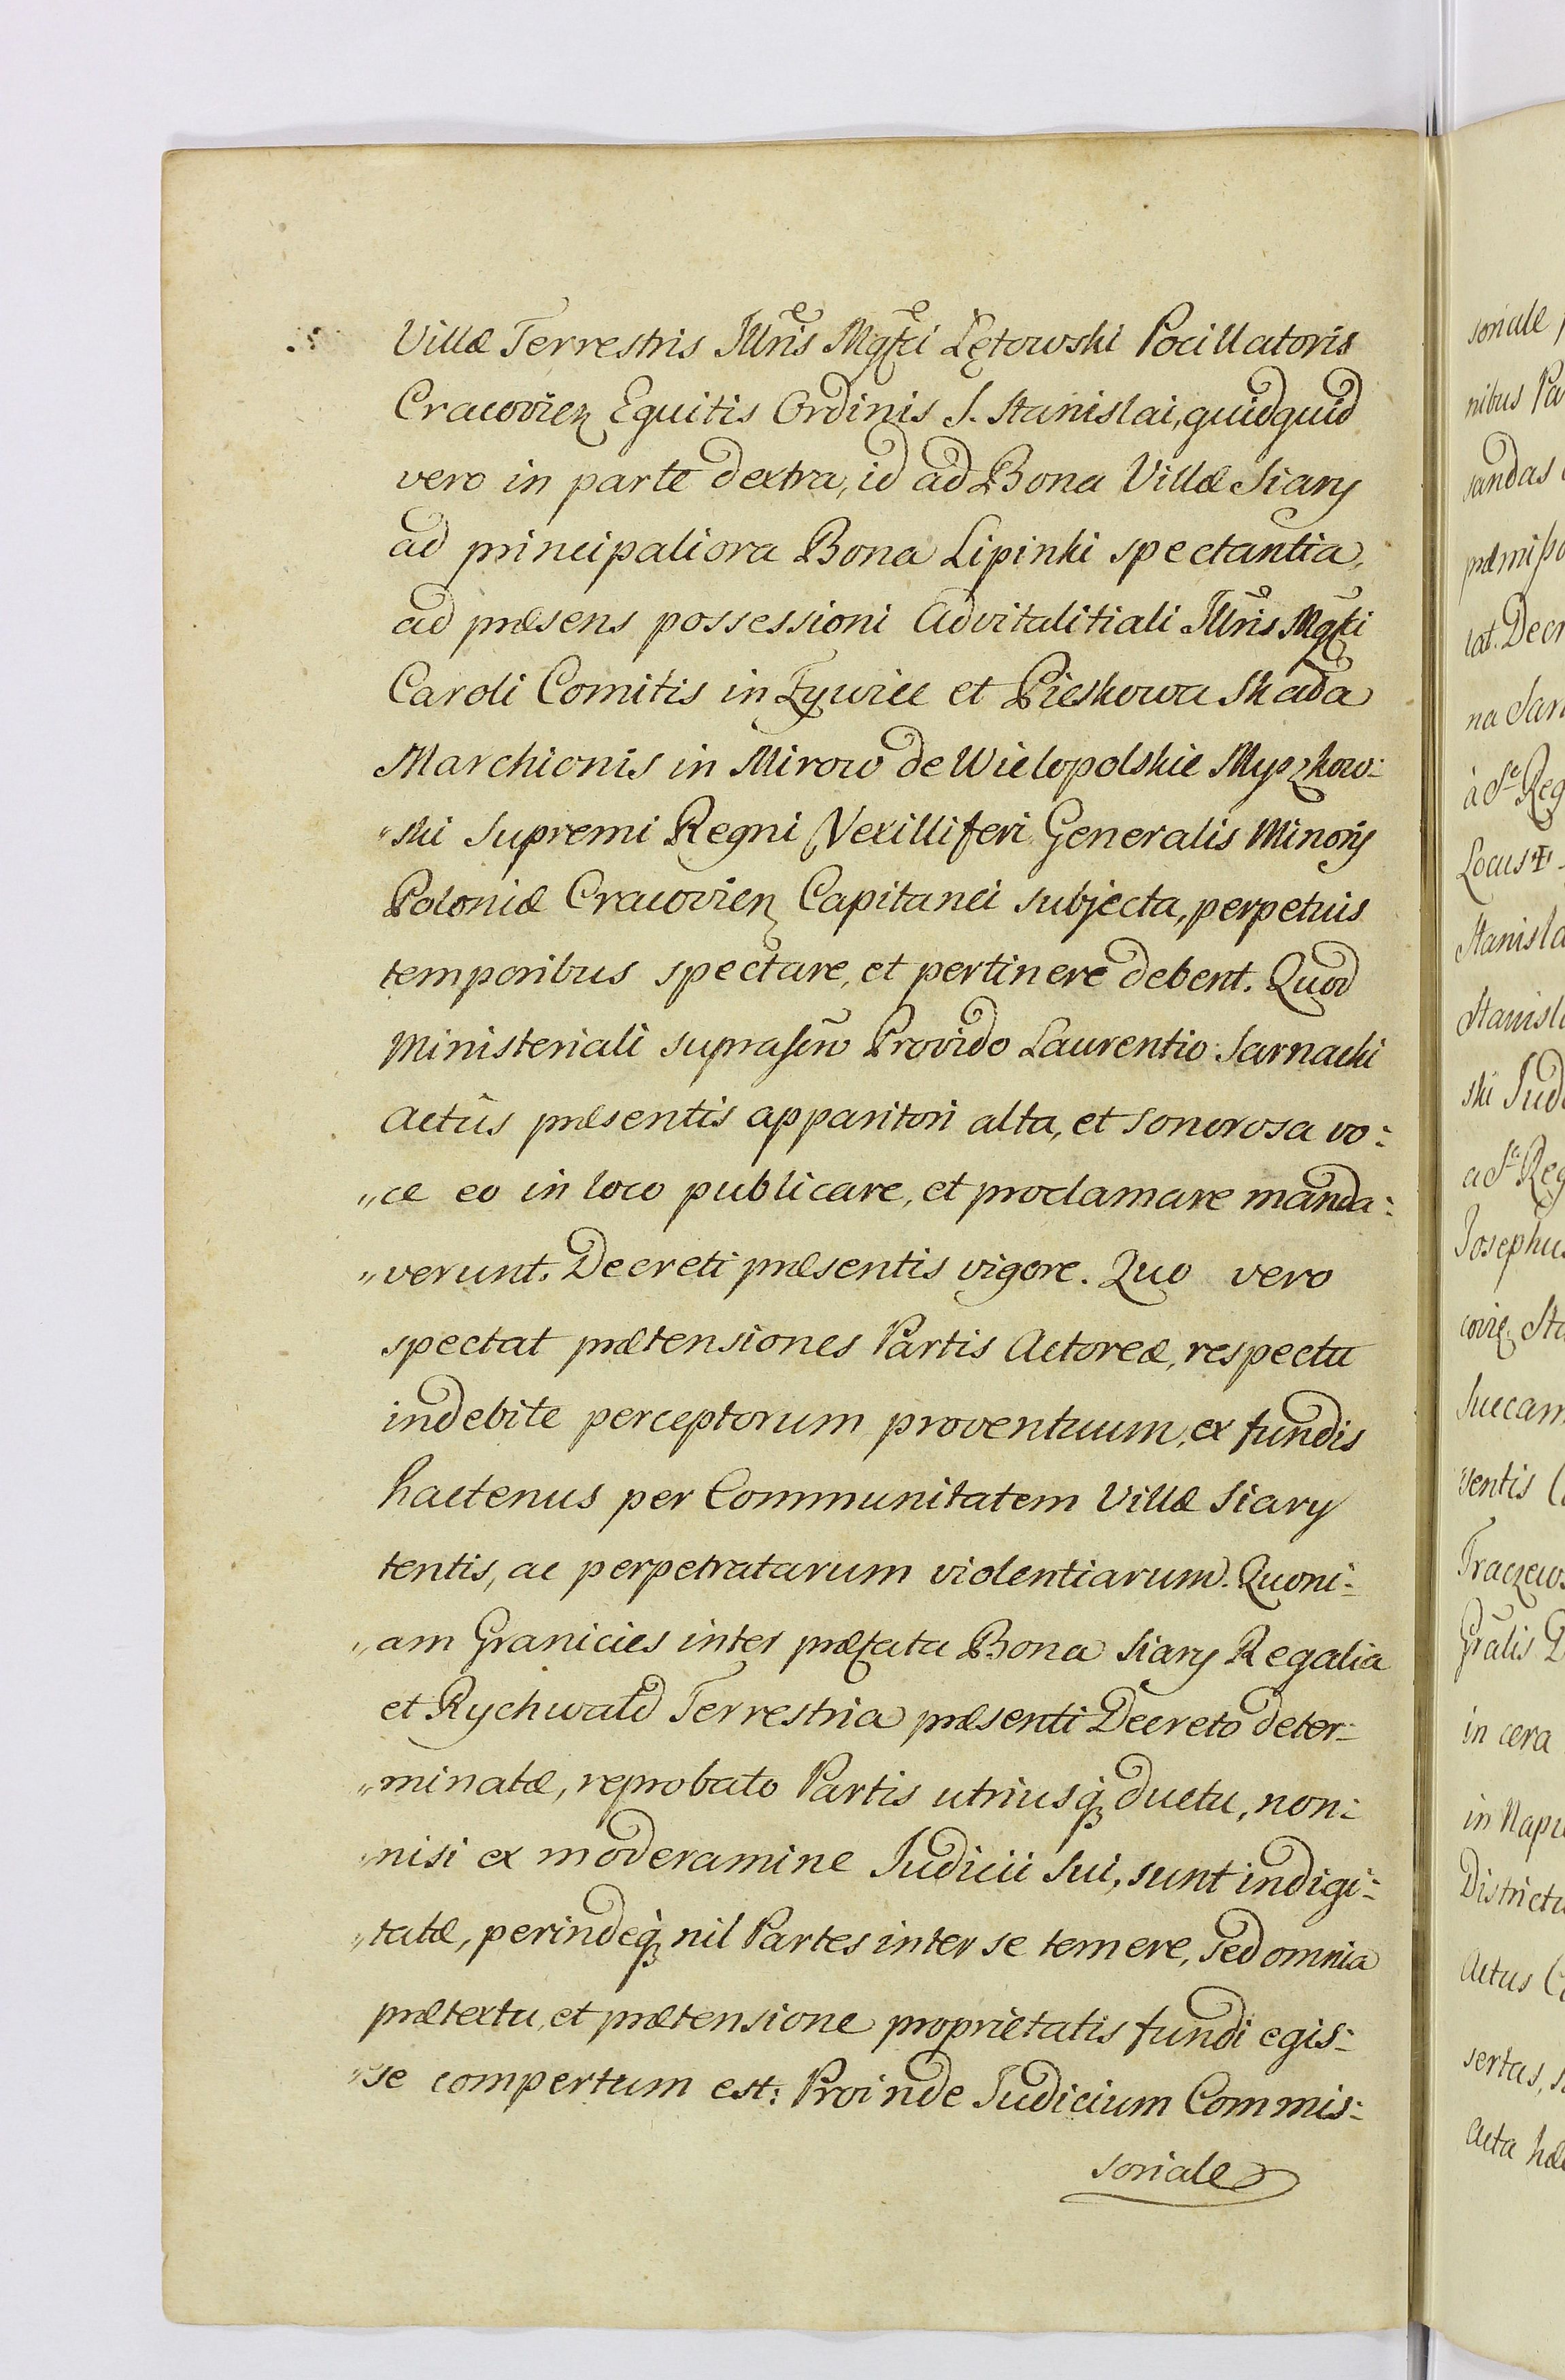 Villæ Terrestris Illris Mgfci Lętowski Pocillatoris
Cracovien Equitis Ordinis S. Stanislai, quidquid
vero in parte dextra, id ad Bona Villæ Siary
ad principaliora Bona Lipinki spectantia,
ad præsens possessioni Advitalitiali Illris Mgfci
Caroli Comitis in Żywiec et Pieskowa Skała
Marchionis in Mirow de Wielopolskie Myszkow=
"ski Supremi Regni Vexilliferi Generalis Minoris
Poloniæ Cracovien Capitanei subjecta, perpetuis
temporibus spectare, et pertinere debent. Quod
Ministeriali suprascrip Provido Laurentio Sarnacki
actûs præsentis apparitori alta, et sonorosa vo=
"ce eo in loco publicare, et proclamare manda=
"verunt. Decreti præsentis vigore. Quo vero
spectat prætensiones Partis Actoreæ, respectu
indebite perceptorum proventuum, ex fundis
hactenus per Communitatem Villæ Siary
tentis, ac perpetratarum violentiarum. Quoni=
"am Granicies inter præfata Bona Siary Regalia
et Rychwald Terrestria præsenti Decreto deter=
"minatæ, reprobato Partis utriusq duetu, non=
"nisi ex moderamine Judicii sui, sunt indigi=
"tatæ, perindeq nil Partes inter se temere, sed omnia
prætextu, et prætensione proprietatis fundi egis=
"se compertum est: Proinde Judicium Commis=
soriale
soriale
nibus Pa
sandas
præmisso
lat. Decr
na San
à Sc Reg
Locus
Stanisla
Stanisl
ski Jud
a Sc Reg
Josephus
covie Sta
Succam
ventis
Traczews
Gralis D
in cera
in Papi
Districtu
Actus C
sertas, s
Acta hæ